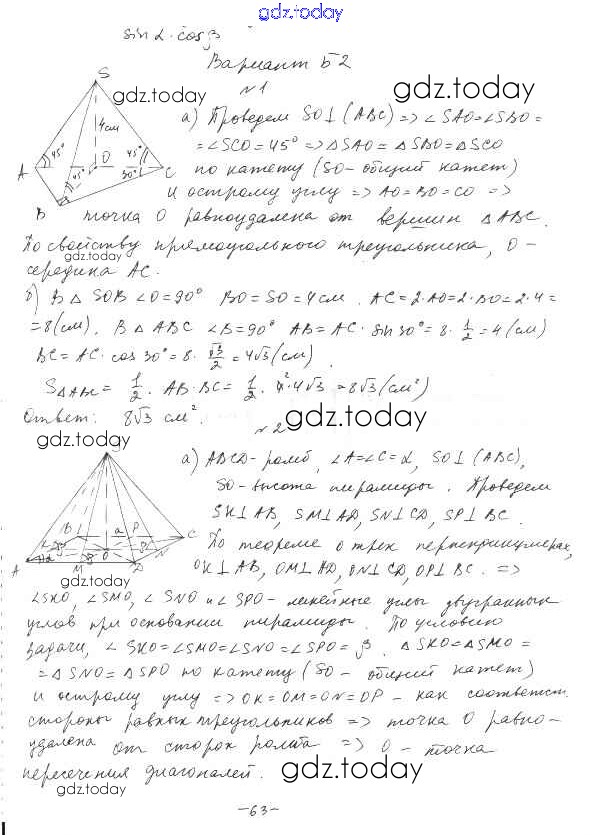 gdz.today
sin α · cos β
Вариант Б2
№1
gdz.today gdz.today
S
4см
45° 45° 45° 30°
A O C
B
а) Проведем SO⊥(ABC) => ∠SAO=∠SBO=
=∠SCO=45° => △SAO=△SBO=△SCO
по катету (SO-общий катет)
и острому углу => AO=BO=CO =>
точка O равноудалена от вершин △ABC.
По свойству прямоугольного треугольника, O -
gdz.today
середина AC.
б) В △SOB ∠O=90° BO=SO=4см. AC=2·AO=2·BO=2·4=
=8(см). В △ABC ∠B=90° AB=AC·sin30°=8·1/2=4(см)
BC=AC·cos30°=8·√3/2=4√3(см)
S△ABC=1/2·AB·BC=1/2·4·4√3=8√3(см²)
Ответ: 8√3 см².
gdz.today
№2
gdz.today
а) ABCD-ромб, ∠A=∠C=α, SO⊥(ABC),
SO-высота пирамиды. Проведем
SK⊥AB, SM⊥AD, SN⊥CD, SP⊥BC.
По теореме о трех перпендикулярах,
OK⊥AB, OM⊥AD, ON⊥CD, OP⊥BC. =>
B a P C
K O N
A M D
gdz.today
∠SKO, ∠SMO, ∠SNO и ∠SPO-линейные углы двугранных
углов при основании пирамиды. По условию
задачи, ∠SKO=∠SMO=∠SNO=∠SPO=β. △SKO=△SMO=
=△SNO=△SPO по катету (SO- общий катет)
и острому углу => OK=OM=ON=OP - как соответст.
стороны равных треугольников => точка O равно-
удалена от сторон ромба => O - точка
пересечения диагоналей.
gdz.today
gdz.today
-63-